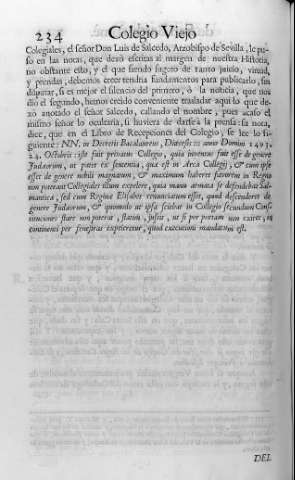 234 Colegio Viejo
Colegiales, el señor Don Luis de Salcedo, Arzobispo de Sevilla, le puso
so en las notas, que dexò escritas al margen de nuestra Historia,
no obstante esto, y el que siendo sugeto de tanto juicio, virtud,
y prendas, debemos creer tendria fundamentos para publicarlo, sin
disputar, si es mejor el silencio del primero, ò la noticia, que nos
diò el segundo, hemos creido conveniente trasladar aqui lo que dexò
anotado el señor Salcedo, callando el nombre, pues acaso el
mismo señor lo ocultaria, si huviera de darse à la prensa: su nota,
dice, que en el Libro de Recepciones del Colegio, se lee lo siguiente:
NN. in Decretis Bacalaureus, Diœcesis :::: anno Domini 1493.
24. Octobris: iste fuit privatus Collegio, quia inventus fuit esse de genere
Judæorum, ut patet ex sententia, quæ est in Arca Collegij; & cum ipse
esset de genere nobili magnatum, & maximum haberet favorem in Regno
non poterant Collegiales illum expelere, quia manu armata se defendebat Salmanticæ,
sed cum Reginæ Elisabet renunciatum esset, quod descenderet de
genere Judæorum, & quomodo ut ipsa sciebat in Collegio secundum Constitutiones
stare non poterat, statim, jussit, ut si per portam non exiret, in
continenti per fenestras expriceretur, quod executioni mandatum est.
DEL